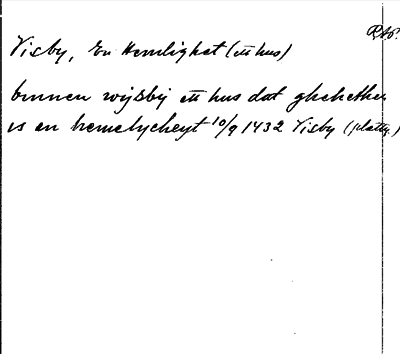 RAp.
Visby, En Hemlighet (ett hus)
bynnen wijsbij ett hus dat ghehethen
is en hemelycheyt 10/9 1432 Visby (plattty.)